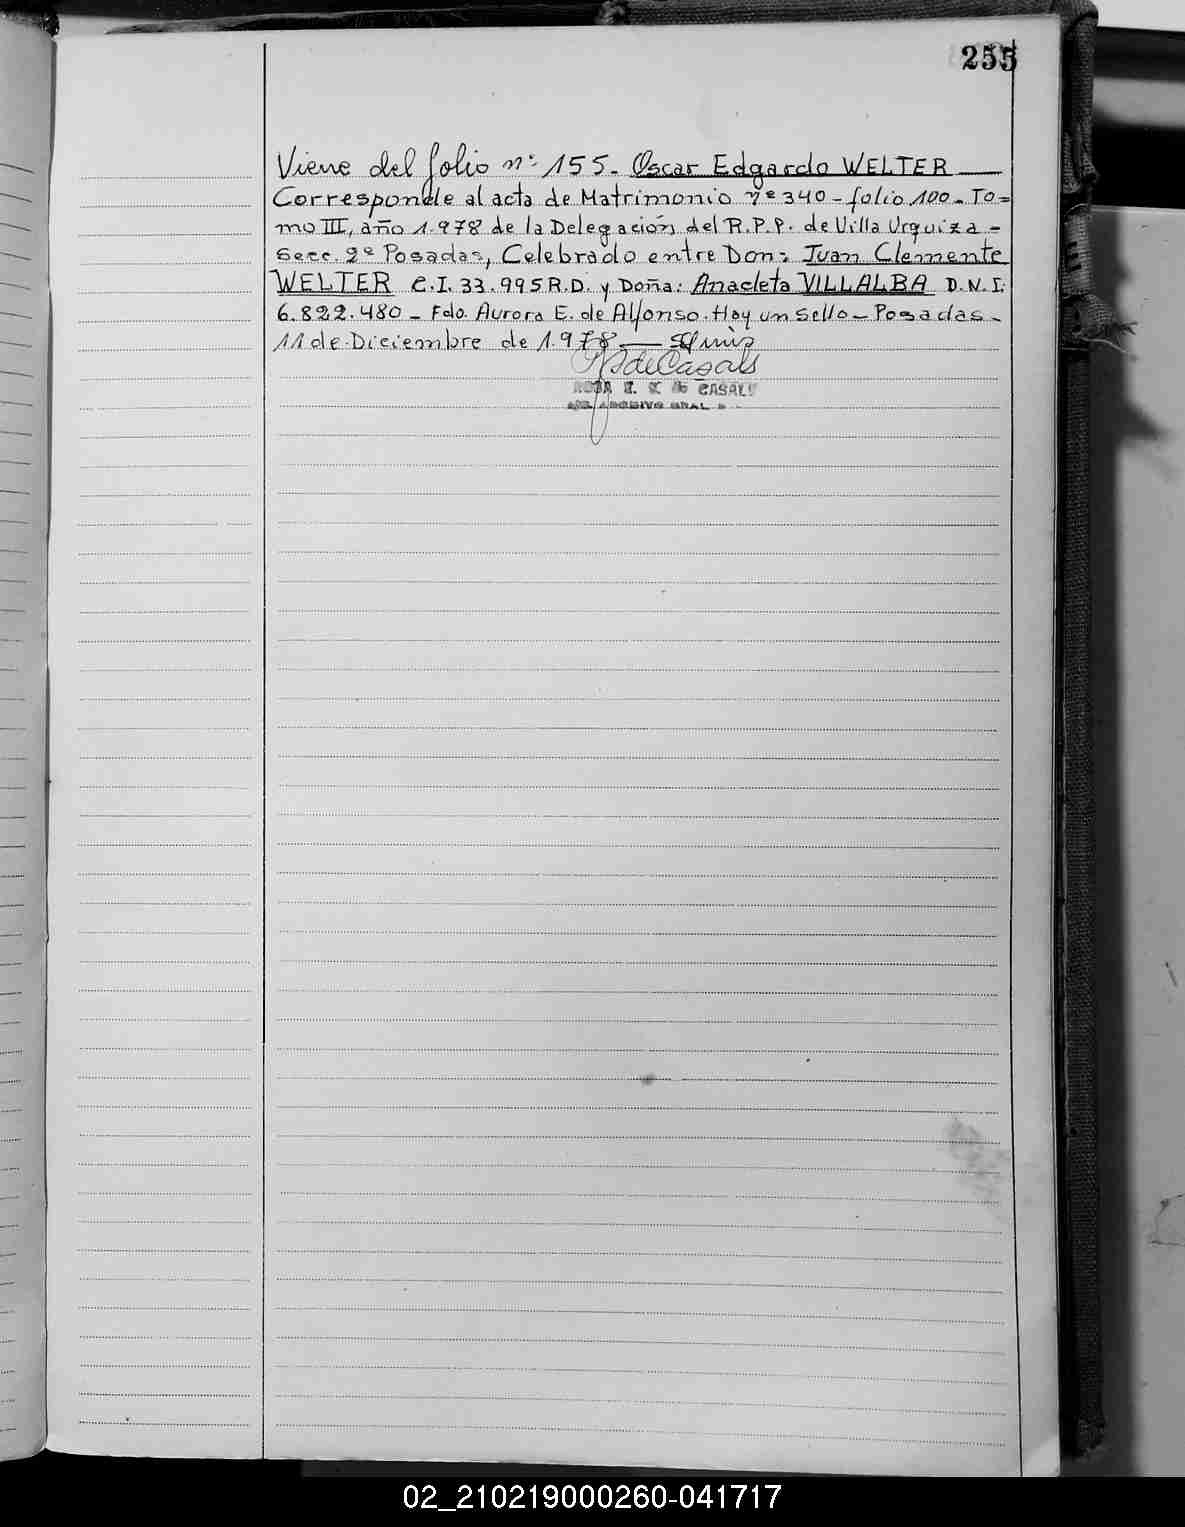 255
Viene del folio nº 155. Oscar Edgardo WELTER
Corresponde al acta de Matrimonio nº 340 - folio 100 - To=
mo III, año 1.978 de la Delegación del R.P.P. de Villa Urquiza -
Secc. 2º Posadas, Celebrado entre Don: Juan Clemente
WELTER C.I. 33.995 R.D. y Doña: Anacleta VILLALBA D.N.I.
6.822.480 - Fdo. Aurora E. de Alfonso. Hay un sello - Posadas -
11 de Diciembre de 1.978
de Casals
ROSA E. de CASALS
ARCHIVO GRAL
02_210219000260-041717